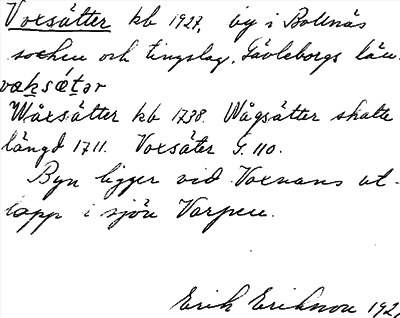 Voxsätter kb 1927, by i Bollnäs
socken och tingslag, Gävleborgs län.
vaksétər
Wåxsätter kb 1738. Wågsätter skatte
längd 1711. Voxsäter G. 110.
Byn ligger vid Voxnans ut-
lopp i sjön Varpen.
Erik Erikson 192